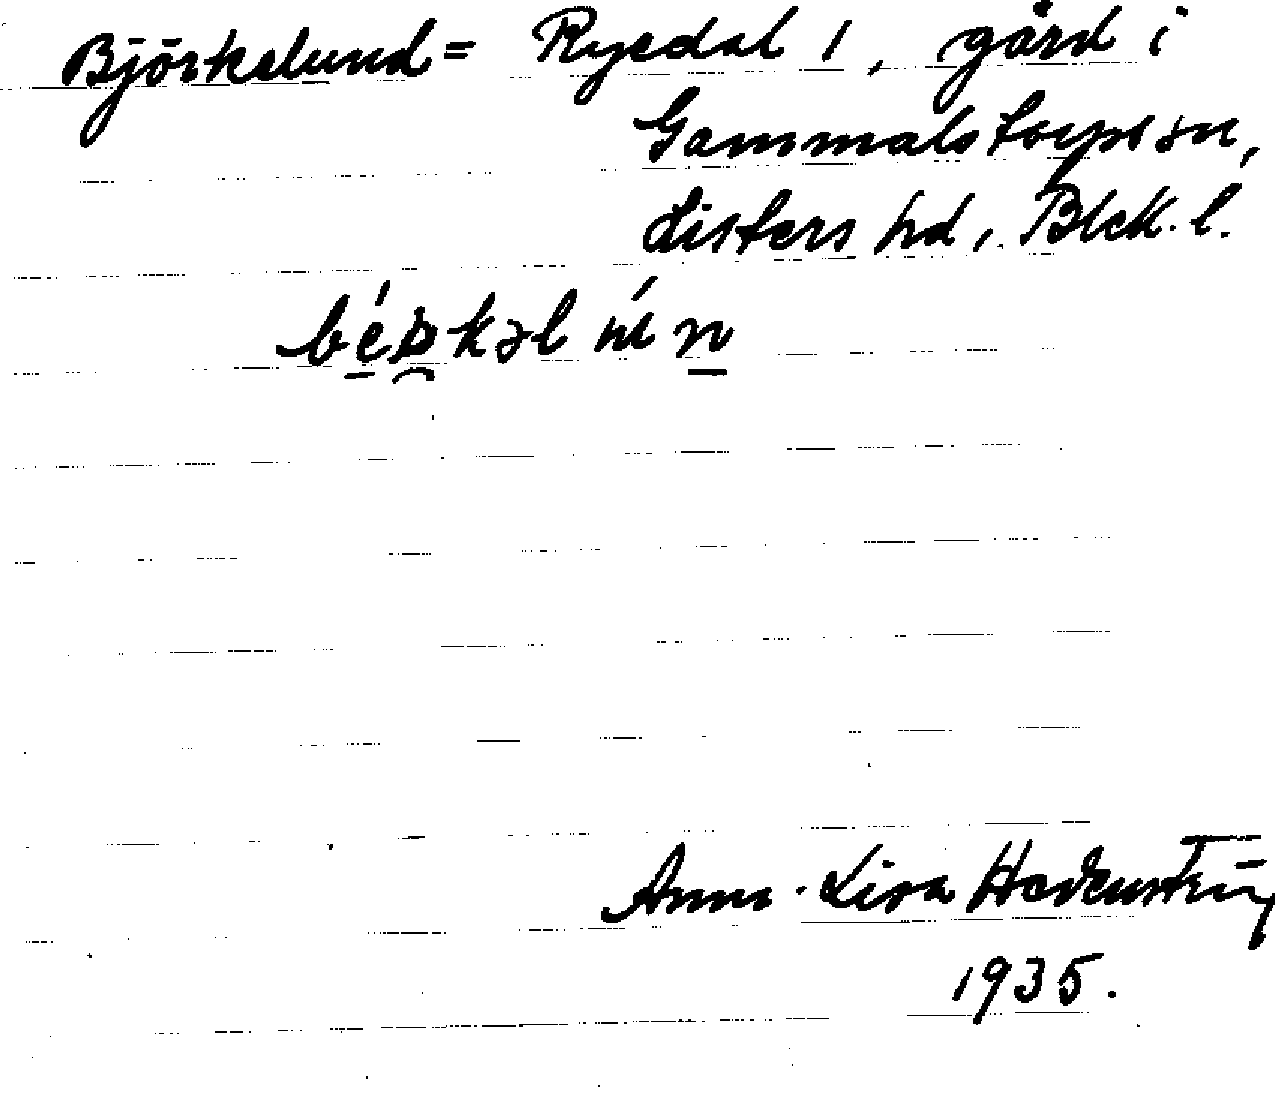 Björkelund = Ryedal 1, gård i
Gammalstorps sn,
Listers hd, Blek. l.
Anna-Lisa
1935.